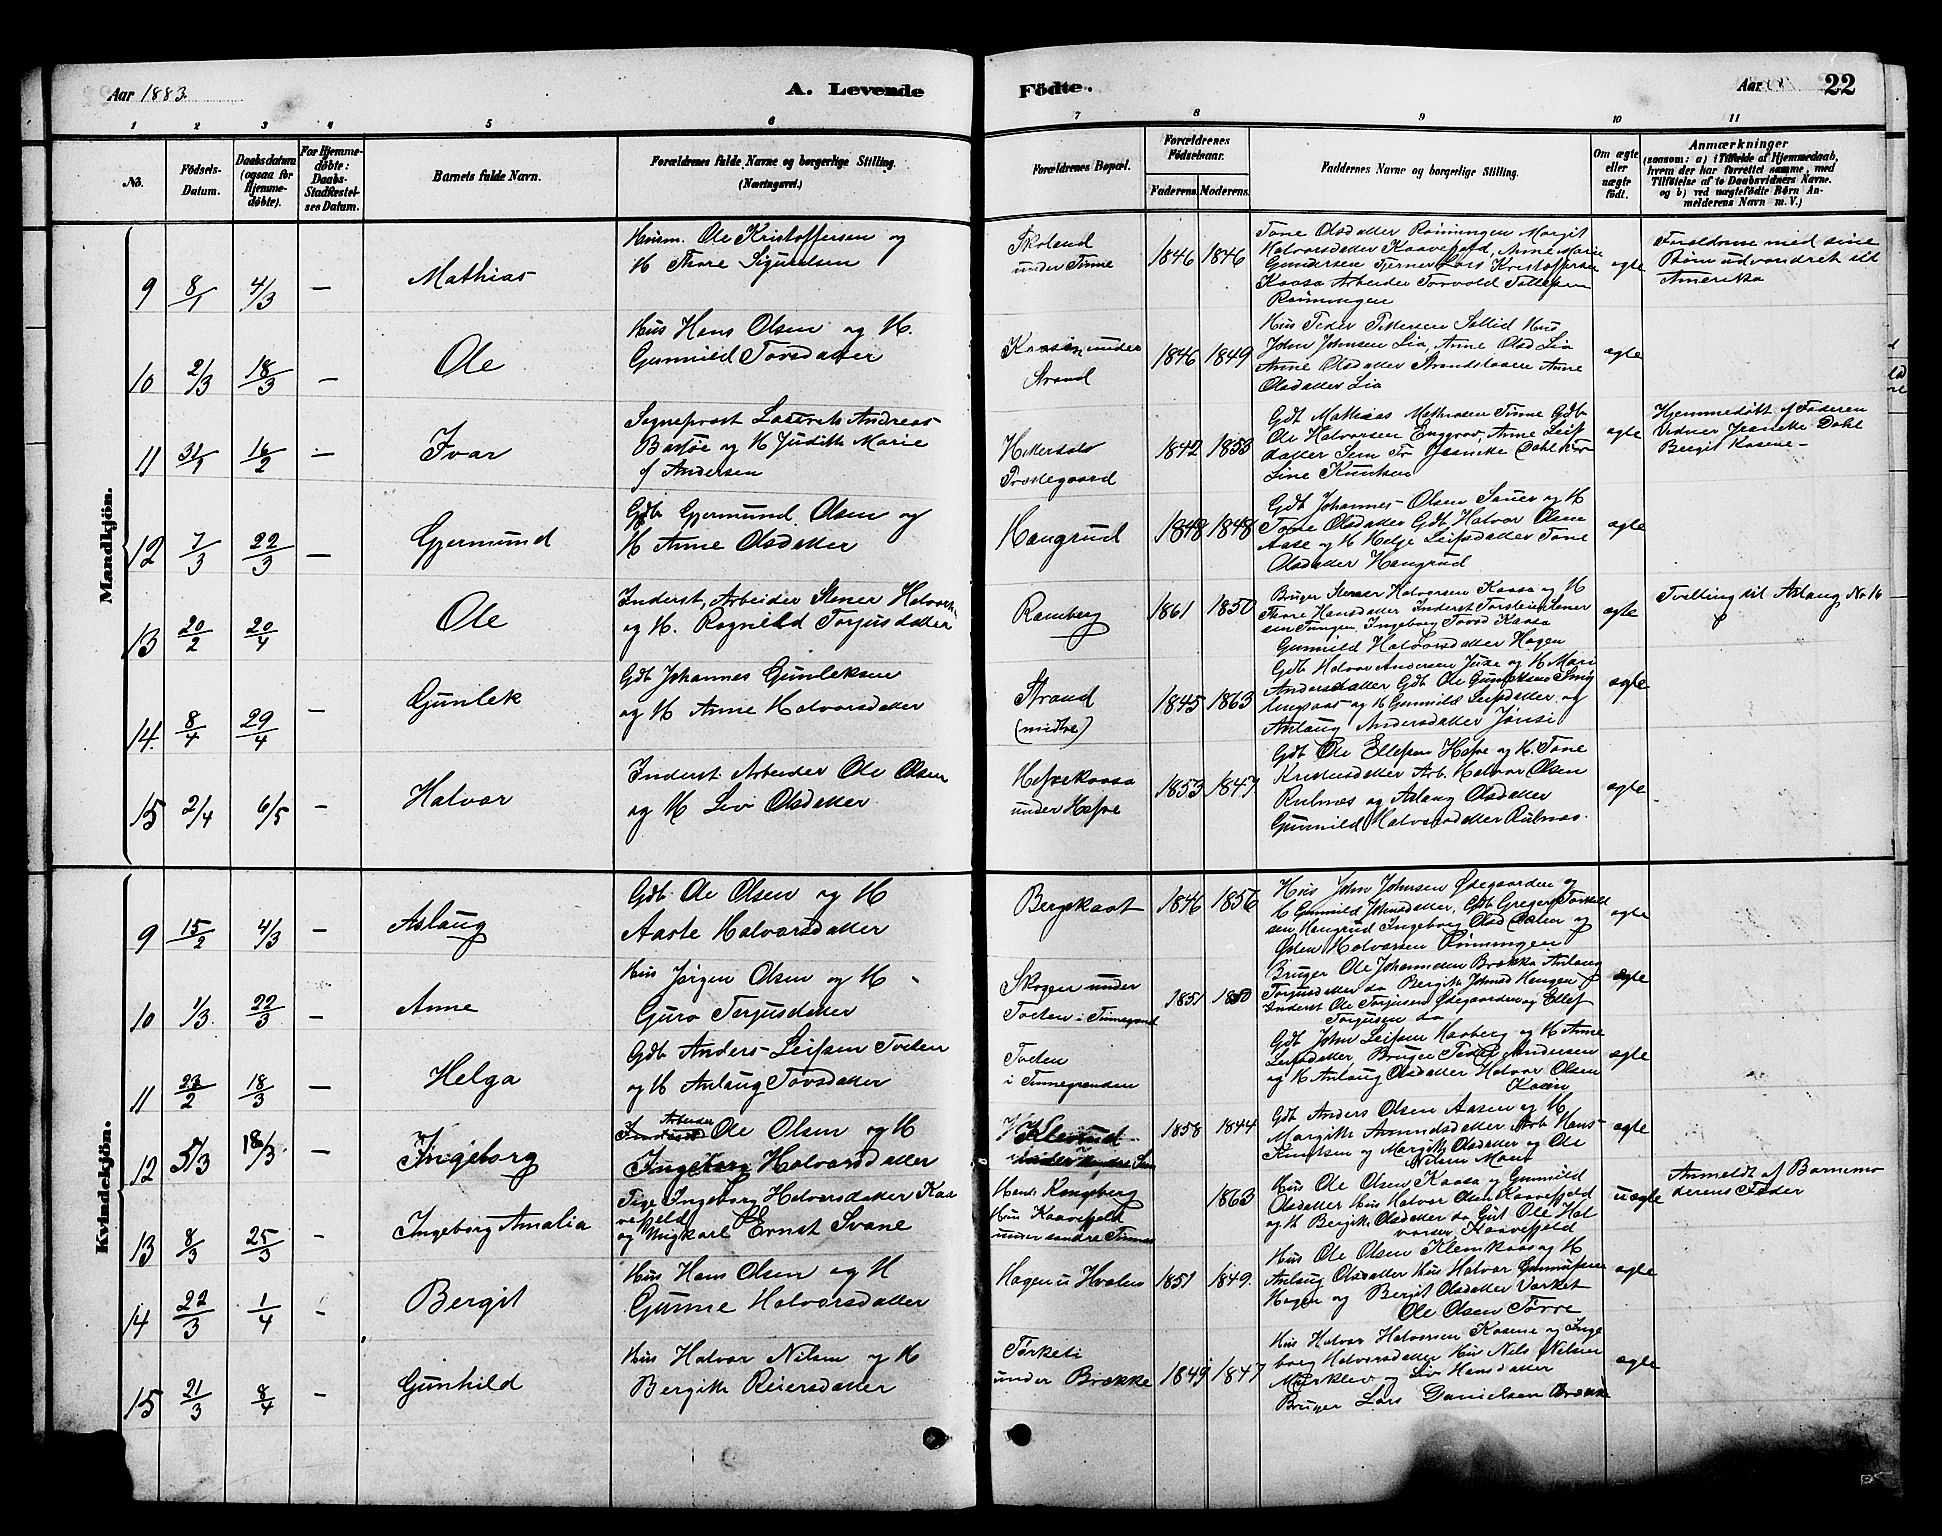 Aar 1883.
A. Levende
Fødte.
Aar
22
1 2 3 4 5 6 7 8 9 10 11
No.
Fødsels-
Datum.
Daabsdatum
(ogsaa for
Hjemme-
døbte).
For Hjemme-
døbte:
Daabs-
Stadfæstel-
ses Datum.
Barnets fulde Navn.
Forældrenes fulde Navne og borgerlige Stilling.
(Næringsvei.)
Forældrenes Bopæl.
Forældrenes
Fødselsaar.
Faderens. Moderens.
Faddernes Navne og borgerlige Stilling.
Om ægte
eller
uægte
født.
Anmærkninger
(saasom: a) i Tilfælde af Hjemmedaab,
hvem der har forrettet samme, med
Tilføielse af to Daabsvidners Navne.
og b) ved uægtefødte Børn An-
melderens Navn m. V.)
Mandkjön.
9 8/1 4/3 — Mathias
Husm. Ole Kristoffersen og
H Thore Sigurdsen
Skoland
under Tinne
1846 1846
Tone Olsdatter Rønningen Margit
Halvorsdatter Kaavefjeld, Anne Marie
Gundersen Tjerner Lars Kristoffersen
Kaasa Arbeider Torvold Tollefsen
Rønningen
ægte
Forældrene med sine
Børn udvandret til
Amerika
10 2/3 18/3 — Ole
Hus Hans Olsen og H.
Gunnild Torsdatter
Kaasen under
Strand
1846 1849
Hus Peder Pettersen Sollid Hus
John Johnsen Lia, Anne Olsd Lia
Anne Olsdatter Strandskaasa Anne
Olsdatter Lia
ægte
11 31/1 16/2 — Ivar
Sogneprest Laurets Andreas
Bassøe og H Judith Marie
f Andersen
Hitterdals
Prestegaard
1842 1853
Gdb Mathias Mathiasen Tinne Gdb
Ole Halvorsen Enggrav, Anne Leif
datter Sem Fr Janneke Dahl Frk
Line Knudsen
ægte
Hjemmedøbt af Faderen
Vidner Janneke Dahl
Bergit Kasine—
12 7/3 22/3 — Gjermund
Gdb Gjermund Olsen og
H Anne Olsdatter
Haugrud
1848 1848
Gdb Johannes Olsen Sauer og H
Tone Olsdatter Gdb Halvor Olsen
Aase og H Helje Leifsdatter Tone
Olsdatter Haugrud
ægte
13 20/2 20/4 Ole
Inderst, Arbeider Stener Halvorsen
og H. Rognild Torjusdatter
Ramberg
1861 1850
Bruger Stener Halvorsen Kaasa og H
Thore Hansdatter Inderst Torstein Stener
sen Tungen, Ingeborg Torsd Kaasa
Gunnild Halvorsdatter Hagen
ægte
Tvilling til Aslaug No 16
14. 8/4 29/4 — Gunlek
Gdb Johannes Gunleksen
og H Anne Halvorsdatter
Strand
(midtre)
1845 1863
Gdb Halvor Andersen Juxe og H Mari
Andersdatter Gdb Ole Gunleksen
og H Gunnild Leifsdatter og
Aslaug Andersdatter Jønsi
ægte
15 2/4 6/5 — Halvor
Inderst Arbeider Ole Olsen
og H Liv Olsdatter
Hefrekaasa
under Hefre
1853 1847
Gdb Ole Ellefsen Hefre og H. Tone
Kristensdatter Arb. Halvor Olsen
Rulnæs og Aslaug Olsdatter
Gunnild Halvorsdatter Rulnæs.
ægte
Kvindekjön.
9 15/2 4/3 — Aslaug
Gdb. Ole Olsen og H
Aaste Halvorsdatter
Bergskaat
1846 1856
Hus John Johnsen Ødegaarden og
H Gunnild Johnsdatter, Gdb Greger Torkild
sen Haugrud Ingeborg Olsd og
Østen Halvorsen Rønningen
ægte
10 1/3. 22/3 — Anne
Hus Jørgen Olsen og H
Guro Torjusdatter
Skogen under
Toften i Tinnegrand
1851 1850
Bruger Ole Johannesen Brække Aslaug
Torjusdatter da Bergith Johnsd Haugen
Inderst Ole Torjusen Ødegaarden og Ellef
Torjusen da
ægte
11 23/2 18/3 — Helga
Gdb Anders Leifsen Toften
og H Aslaug Torsdatter
Toften
i Tinnegranden
Gdb John Leifsen Haaberg og H Anne
Leifsdatter, Bruger Peder Andersen
og H Aslaug Olsdatter Halvor Olsen
Kaasen
ægte
12 5/3 18/3. — Ingeborg
Arbeider
Inderst Ole Olsen og H
Ingeborg Halvorsdatter
Kleviud
under søndre
1858 1844
Gdb Anders Olsen Aasen og H
Margith Amundsdatter Arb Hans
Knutsen og Margith Olsdatter og Ole
Nilsen Moen
ægte
13 8/3 25/3 — Ingeborg Amalia
Pige Ingeborg Halvorsdatter Kaa
vefjeld
og Ungkarl Ernst Svane
Hans Kongsberg
Hus Kaavefjeld
under søndre Tinnes
1863
Hus Ole Olsen Kaasa og Gunnild
Olsdatter Hus Halvor Olsen Kaavefjeld
og H Bergith Olsdatter da Gut Ole Hal
vorsen Kaavefjeld
uægte
Anmeldt af Barnemo
derens Fader
14 22/3 1/4 — Bergit
Hus Hans Olsen og H
Gunne Halvorsdatter
Hagen u Hvalen
1851 1849.
Hus Ole Olsen Klemkaas og H
Aslaug Olsdatter Hus Halvor Gunnufsen
Hagen og Bergit Olsdatter Varket
Ole Olsen Tørre
ægte
15 21/3 8/4 — Gunhild
Hus Halvor Nilsen og H
Bergith Reiersdatter
Torketi
under Brække
1849 1847
Hus Halvor Halvorsen Kasene og Inge
borg Halvorsdatter Hus Nils Nilsen
Mørklev og Liv Hansdatter
Bruger Lars Danielsen Brække
ægte